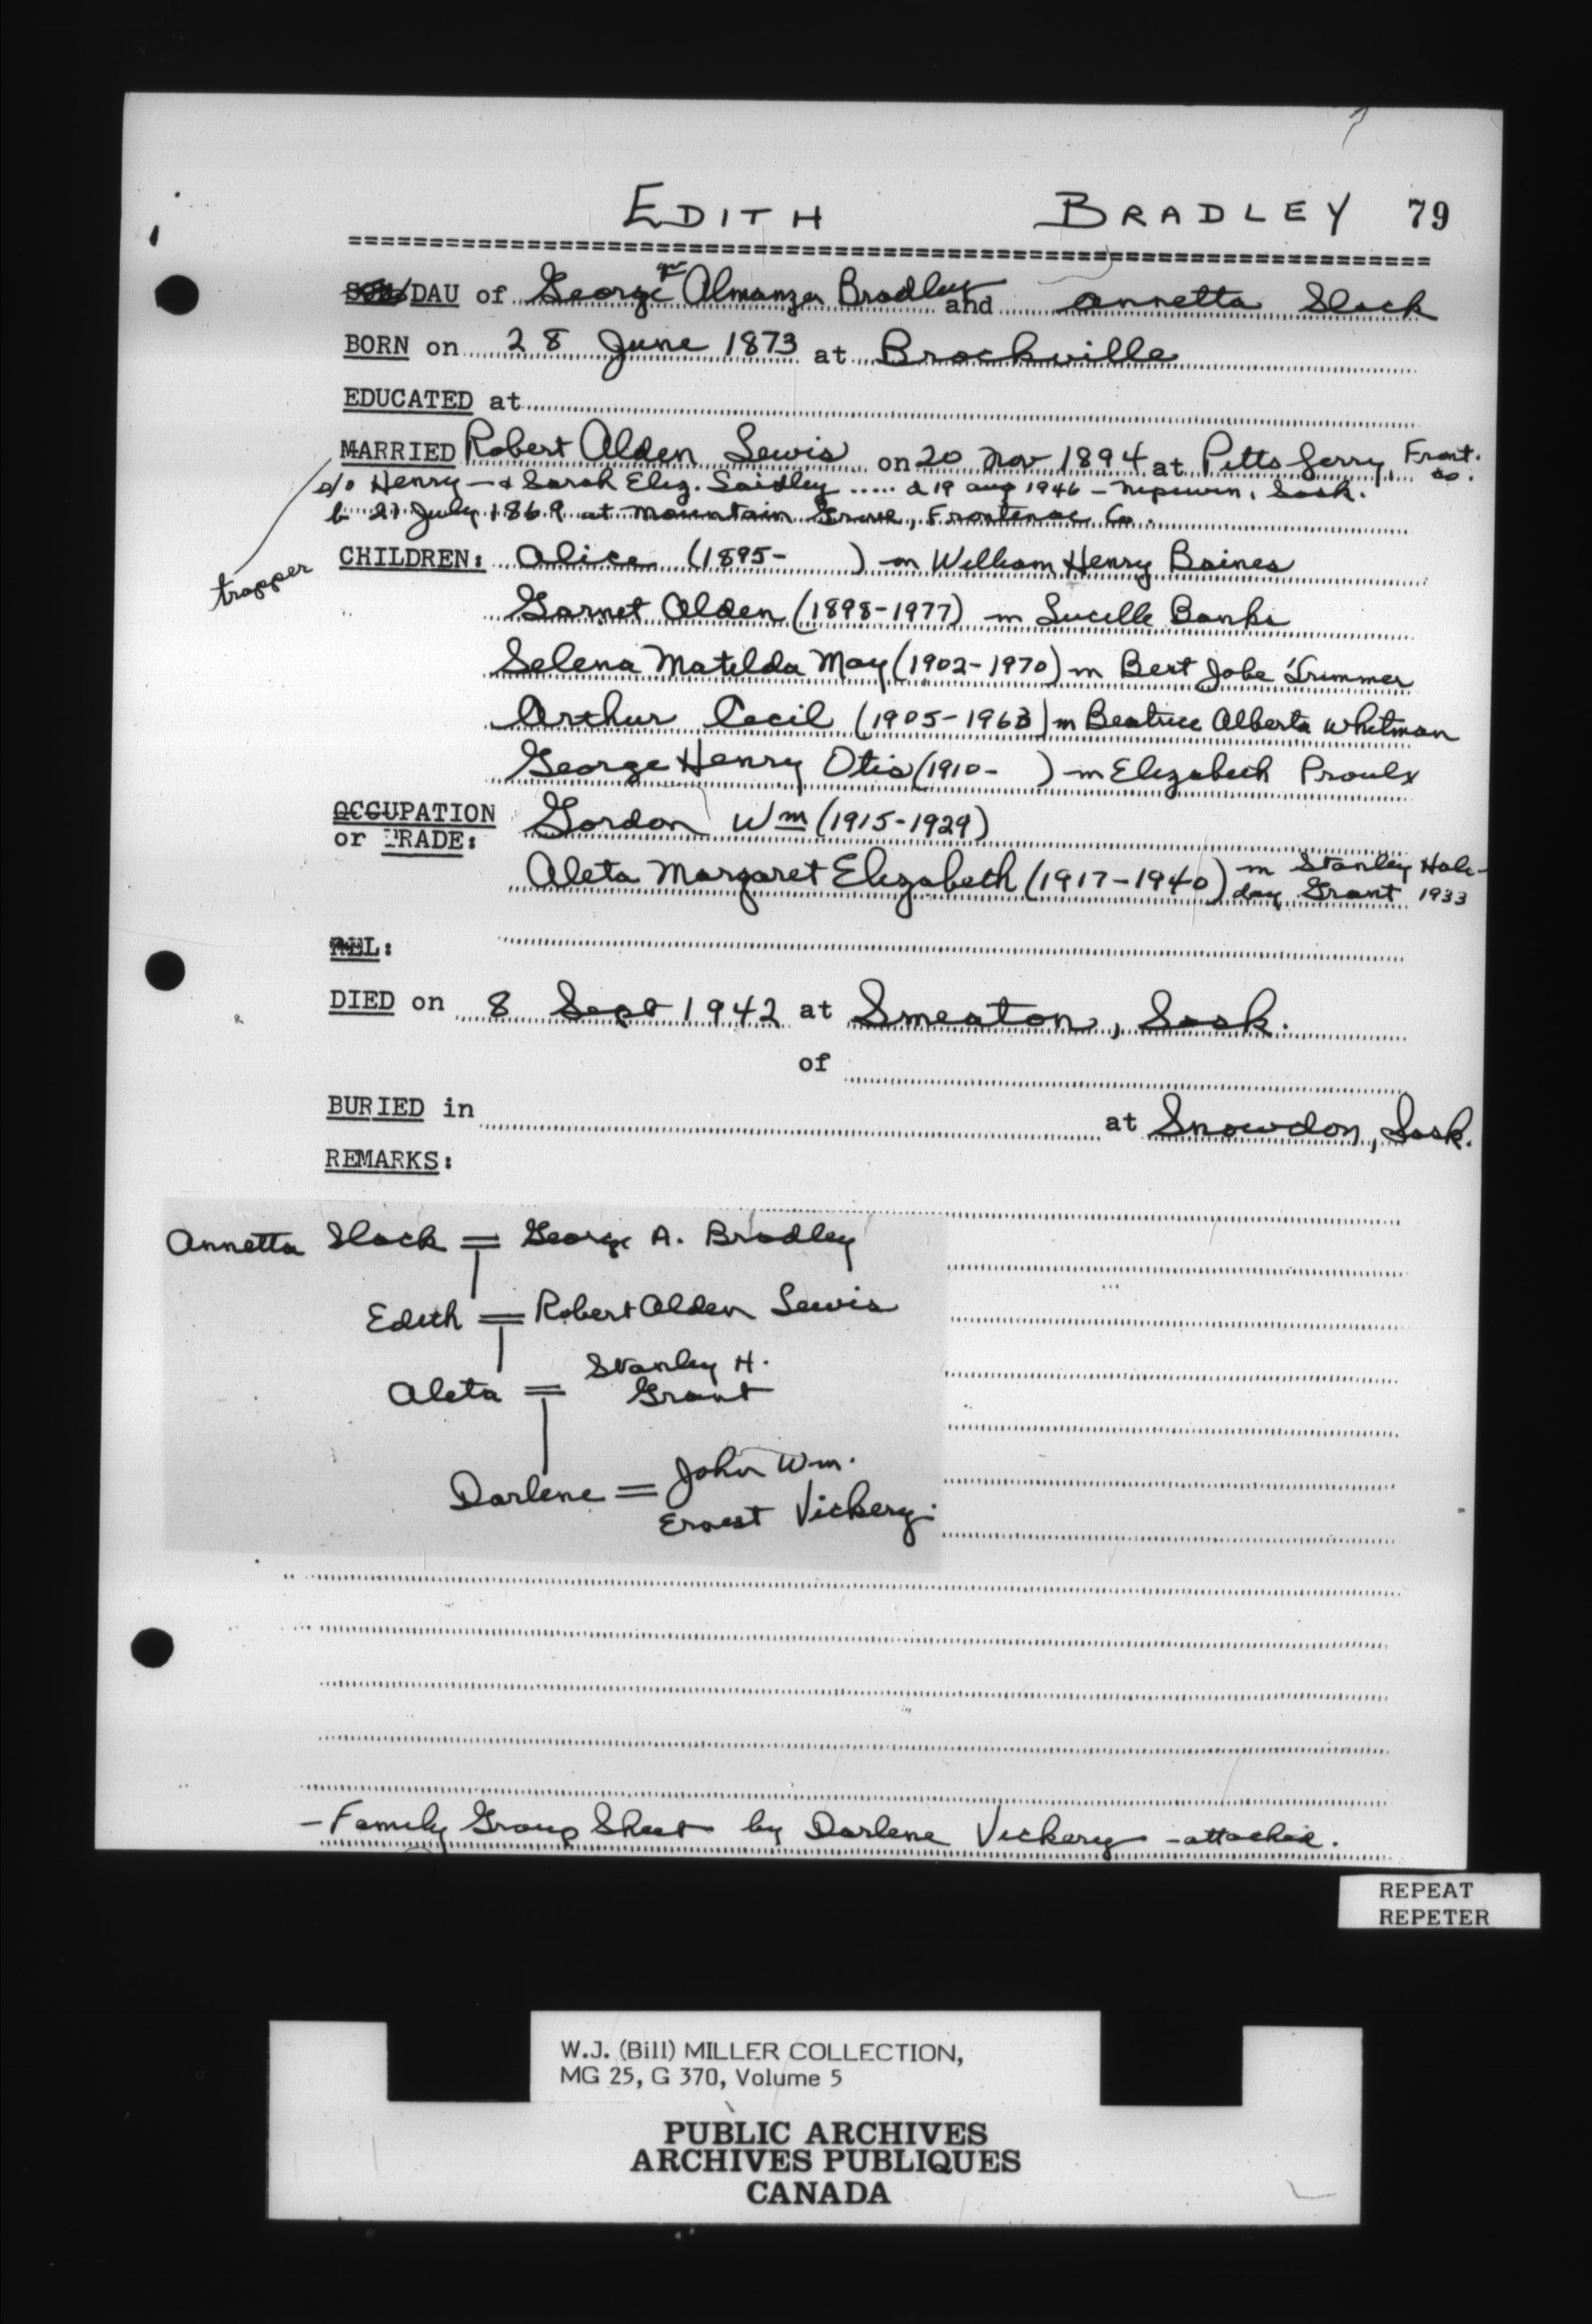 EDITH BRADLEY 79
SON/DAU of George Almanza Bradley and Annetta Slack
BORN on 28 June 1873 at Brockville
EDUCATED at
MARRIED Robert Alden Lewis on 20 Nov 1894 at Pitts Ferry, Front. Co.
s/o Henry — & Sarah Eliz. Saidley ..... d 19 Aug 1946 - Nipawin, Sask.
b 21 July 1869 at Mountain Grove, Frontenac Co.
trapper
CHILDREN: Alice (1895- ) m William Henry Baines
Garnet Alden (1898-1977) m Lucille Banks
Selena Matilda May (1902-1970) m Bert Jobe Trimmer
Arthur Cecil (1905-1963) m Beatrice Alberta Whitman
George Henry Otis (1910- ) m Elizabeth Proulx
OCCUPATION or TRADE: Gordon Wm (1915-1929)
Aleta Margaret Elizabeth (1917-1940) m Stanley Holi-
day Grant 1933
REL:
DIED on 8 Sept 1942 at Smeaton, Sask.
of
BURIED in at Snowdon, Sask.
REMARKS:
Annetta Slack = George A. Bradley
Edith = Robert Alden Lewis
Aleta = Stanley H.
Grant
Darlene = John Wm.
Ernest Vickery.
- Family Group Sheet by Darlene Vickery - attached.
REPEAT
REPETER
W.J. (Bill) MILLER COLLECTION,
MG 25, G 370, Volume 5
PUBLIC ARCHIVES
ARCHIVES PUBLIQUES
CANADA